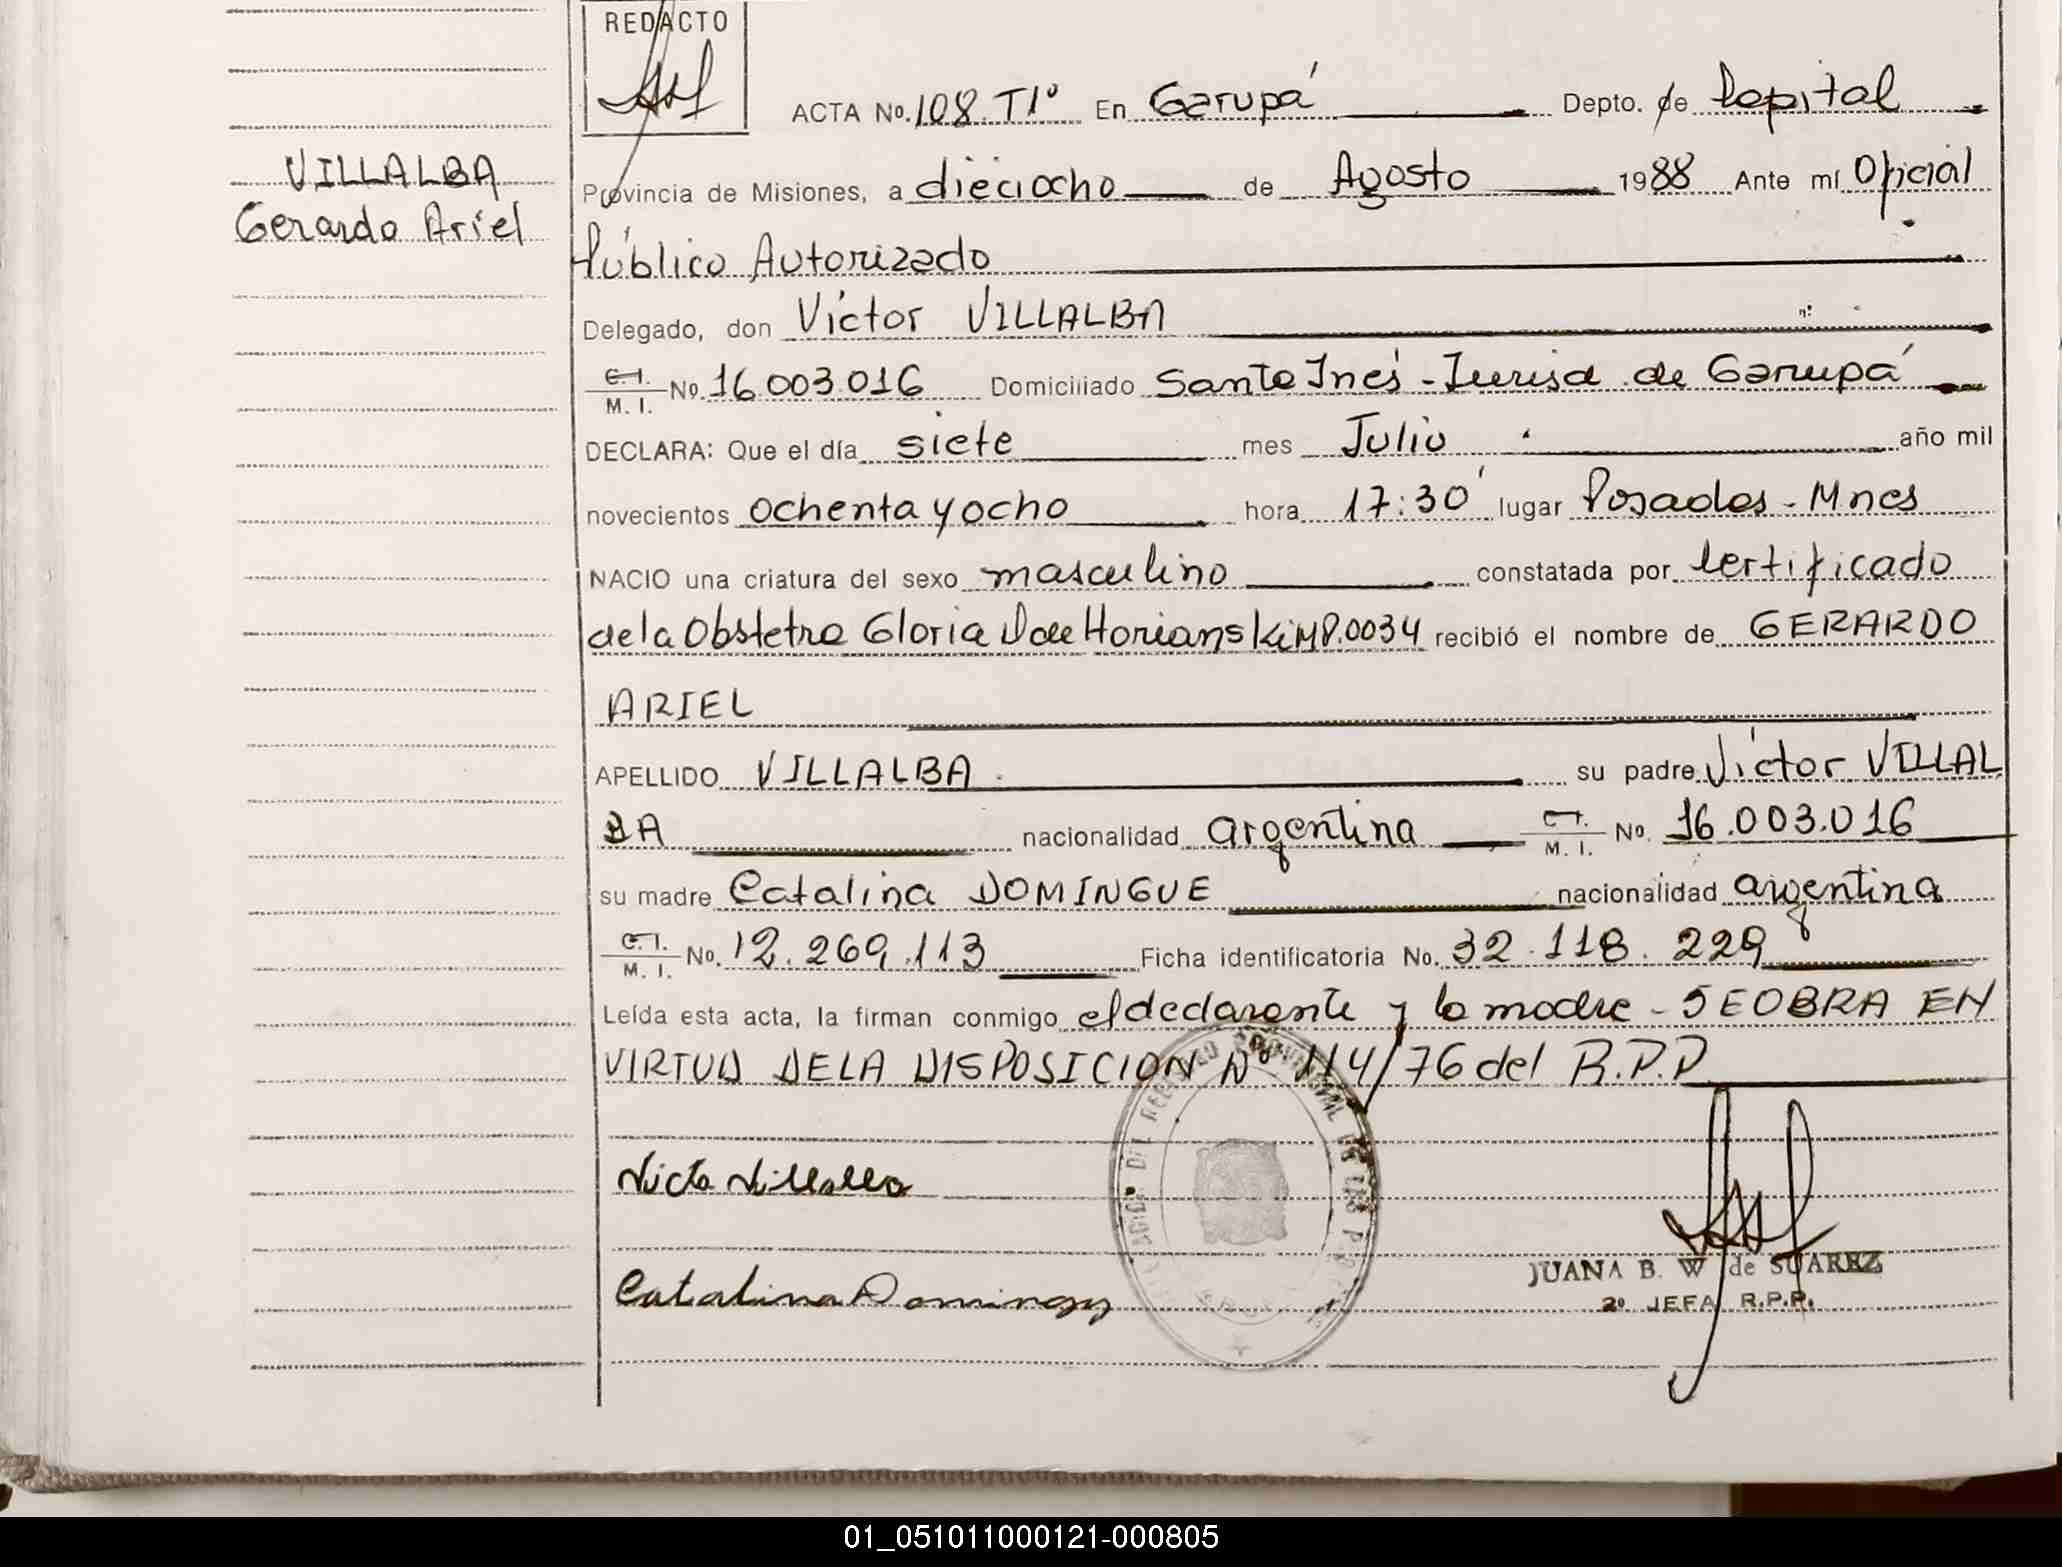 REDACTO
ACTA No. 108 T1º En Garupá Depto. de Capital
VILLALBA
Gerardo Ariel
Provincia de Misiones, a dieciocho de Agosto 1988 Ante mí Oficial
Público Autorizado
Delegado, don Víctor VILLALBA
C.I. M. I. No. 16.003.016 Domiciliado Santa Inés - Jurisd. de Garupá
DECLARA: Que el día siete mes Julio año mil
novecientos ochenta y ocho hora 17:30' lugar Posadas - Mnes
NACIO una criatura del sexo masculino constatada por Certificado
de la Obstetra Gloria D de Horianski MP.0034 recibió el nombre de GERARDO
ARIEL
APELLIDO VILLALBA su padre Víctor VILLAL
BA nacionalidad argentina C.I. M. I. No. 16.003.016
su madre Catalina DOMINGUE nacionalidad argentina
C.I. M. I. No. 12.269.113 Ficha identificatoria No. 32.118.229
Leída esta acta, la firman conmigo el declarante y la madre - SE OBRA EN
VIRTUD DE LA DISPOSICION Nº 114/76 del R.P.P
Victo Villalba
Catalina Domingue
JUANA B. W de SUAREZ
2º JEFA R.P.P.
01_051011000121-000805